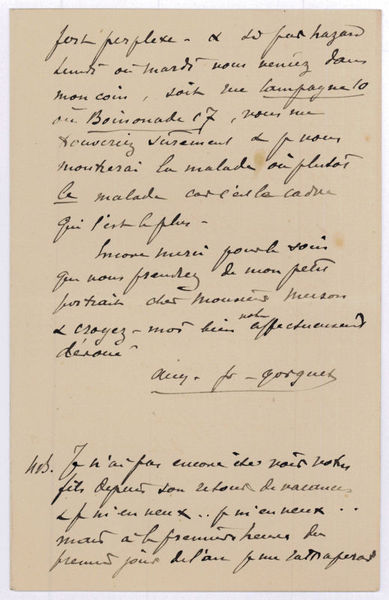 fort perplexe - & si par hazard
lundi ou mardi vous veniez dans
mon coin, soit rue Campagne 10
ou Boissonade 17, vous me
trouveriez sûrement & je vous
montrerai la malade ou plutôt
le malade car c'est le cadre
qui l'est le plus -
Encore merci pour le soin
que vous prendrez de mon petit
portrait cher Monsieur
& croyez-moi bien votre affectueusement
dévoué
Aug. fr - Gorguet
NB. Je n'ai pas encore été voir votre
fils depuis son retour de vacances
& je m'en veux .. je m'en veux ..
mais à la première heure du
premier jour de l'an je me rattraperai